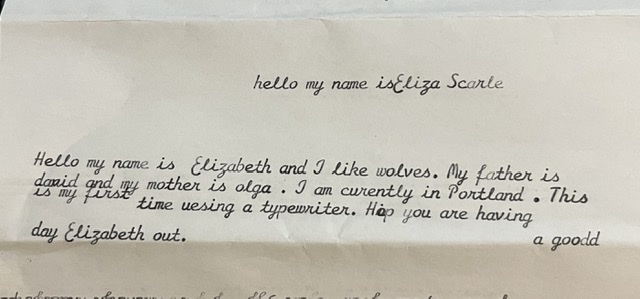 hello my name isEliza Scarle
Hello my name is Elizabeth and I like wolves. My father is
david and my mother is olga . I am curently in Portland . This
is my first
time uesing a typewriter. Hop you are having
a goodd
day Elizabeth out.